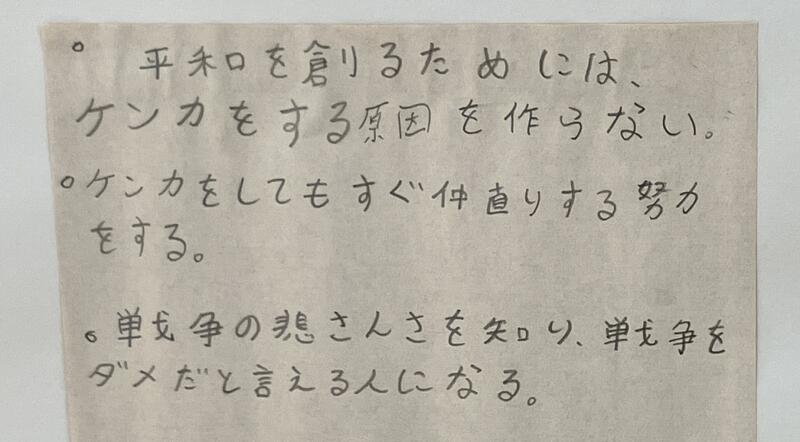 。 平和を創るためには、
ケンカをする原因を作らない。
。ケンカをしてもすぐ仲直りする努力
をする。
。戦争の悲さんさを知り、戦争を
ダメだと言える人になる。